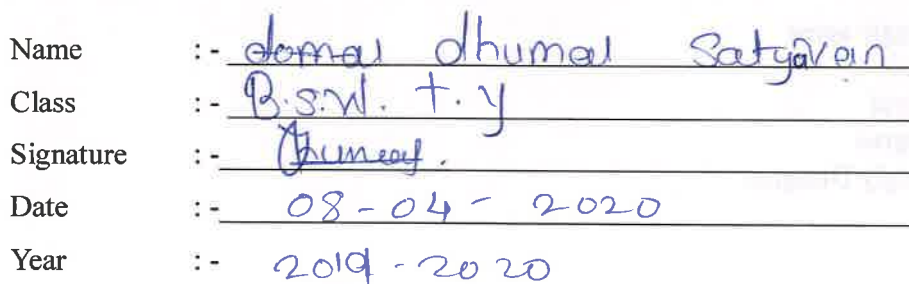 Name :- domal dhumal Satyavan
Class :- B.S.W. T.Y
Signature :-
Date :- 08-04-2020
Year :- 2019-2020